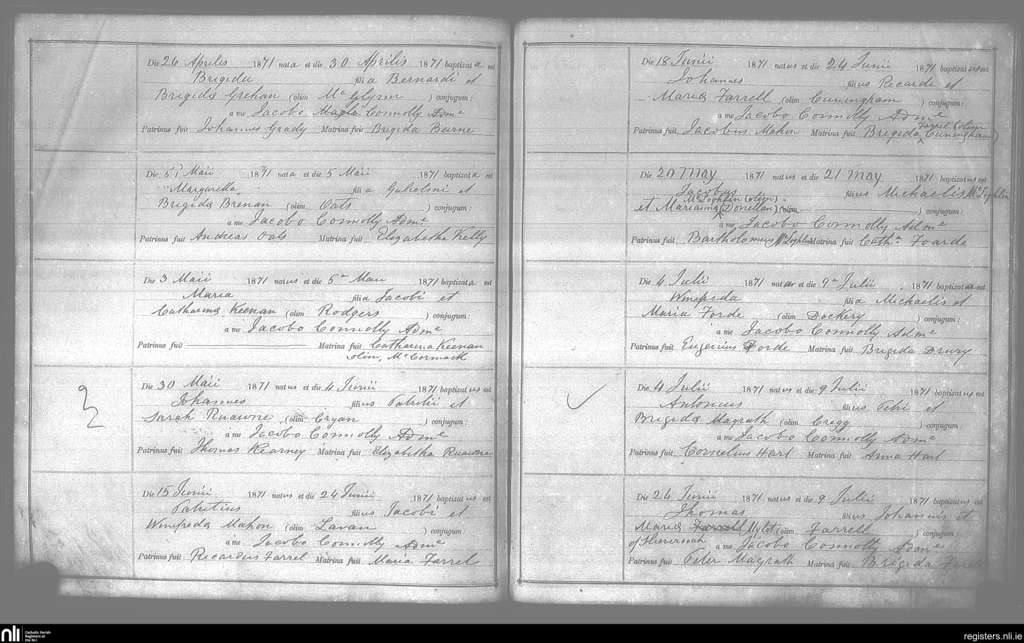 Die 26 Aprilis 1871 nata et die 30 Aprilis 1871 baptizata est
Brigida filia Bernardi et
Brigidæ Grehan (olim McGlynn) conjugum:
a me Jacobo Connolly Admr
Patrinus fuit Johannes Grady Matrina fuit Brigida Burne
Die 5 Maii 1871 nata et die 5 Maii 1871 baptizata
Margaretta filia et
Brigidæ Brenan (olim Oats) conjugum:
a me Jacobo Connolly Admr
Patrinus fuit Andreas Oats Matrina fuit Elizabetha Kelly
Die 3 Maii 1871 natus et die 5 Maii 1871 baptizata est
Maria filia Jacobi et
Catharinæ Keenan (olim Rodgers) conjugum:
a me Jacobo Connolly Admr
Patrinus fuit Matrina fuit Catharina Keenan
olim, McCormack
Die 30 Maii 1871 natus et die 4 Junii 1871 baptizatus est
Johannes filius Patritii et
Sarah Ruawne (olim Cryan) conjugum:
a me Jacobo Connolly Admr
Patrinus fuit Thomas Kearney Matrina fuit Elizabetha Ruawne
Die 15 Junii 1871 natus et die 24 Junii 1871 baptizatus est
Patritius filius Jacobi et
Winefredæ Mahon (olim Lavan) conjugum:
a me Jacobo Connolly Admr
Patrinus fuit Ricardus Farrel Matrina fuit Maria Farrel
Die 18 Junii 1871 natus et die 24 Junii 1871 baptizatus est
Johannes filius Ricardi et
Mariæ Farrell (olim Cuningham) conjugum:
a me Jacobo Connolly Admr
Patrinus fuit Jacobus Mahon Matrina fuit Brigida Farrel (olim Cuningham)
Die 20 May 1871 natus et die 21 May 1871 baptizatus est
Jacobus filius Michaelis McLoghlin
et Mariannæ McLoghlin (olim) (Donellan) (olim) conjugum:
a me Jacobo Connolly Admr
Patrinus fuit Bartholomeus Matrina fuit Cath. Foarde
Die 4 Julii 1871 nata et die 9 Julii 1871 baptizata est
Winefreda filia Michaelis et
Maria Forde (olim Dockery) conjugum:
a me Jacobo Connolly Admr
Patrinus fuit Eugenius Forde Matrina fuit Brigida Drury
Die 4 Julii 1871 natus et die 9 Julii 1871 baptizatus est
Antonius filius Petri et
Brigidæ Magrath (olim Cregg) conjugum:
a me Jacobo Connolly Admr
Patrinus fuit Cornelius Hart Matrina fuit Anna Hart
Die 26 Junii 1871 natus et die 9 Julii 1871 baptizatus est
Thomas filius Johannis et
Mariæ (olim Farrell) conjugum:
a me Jacobo Connolly Admr
Patrinus fuit Peter Magrath Matrina fuit Brigida
nli Catholic Parish Registers at the NLI
registers.nli.ie